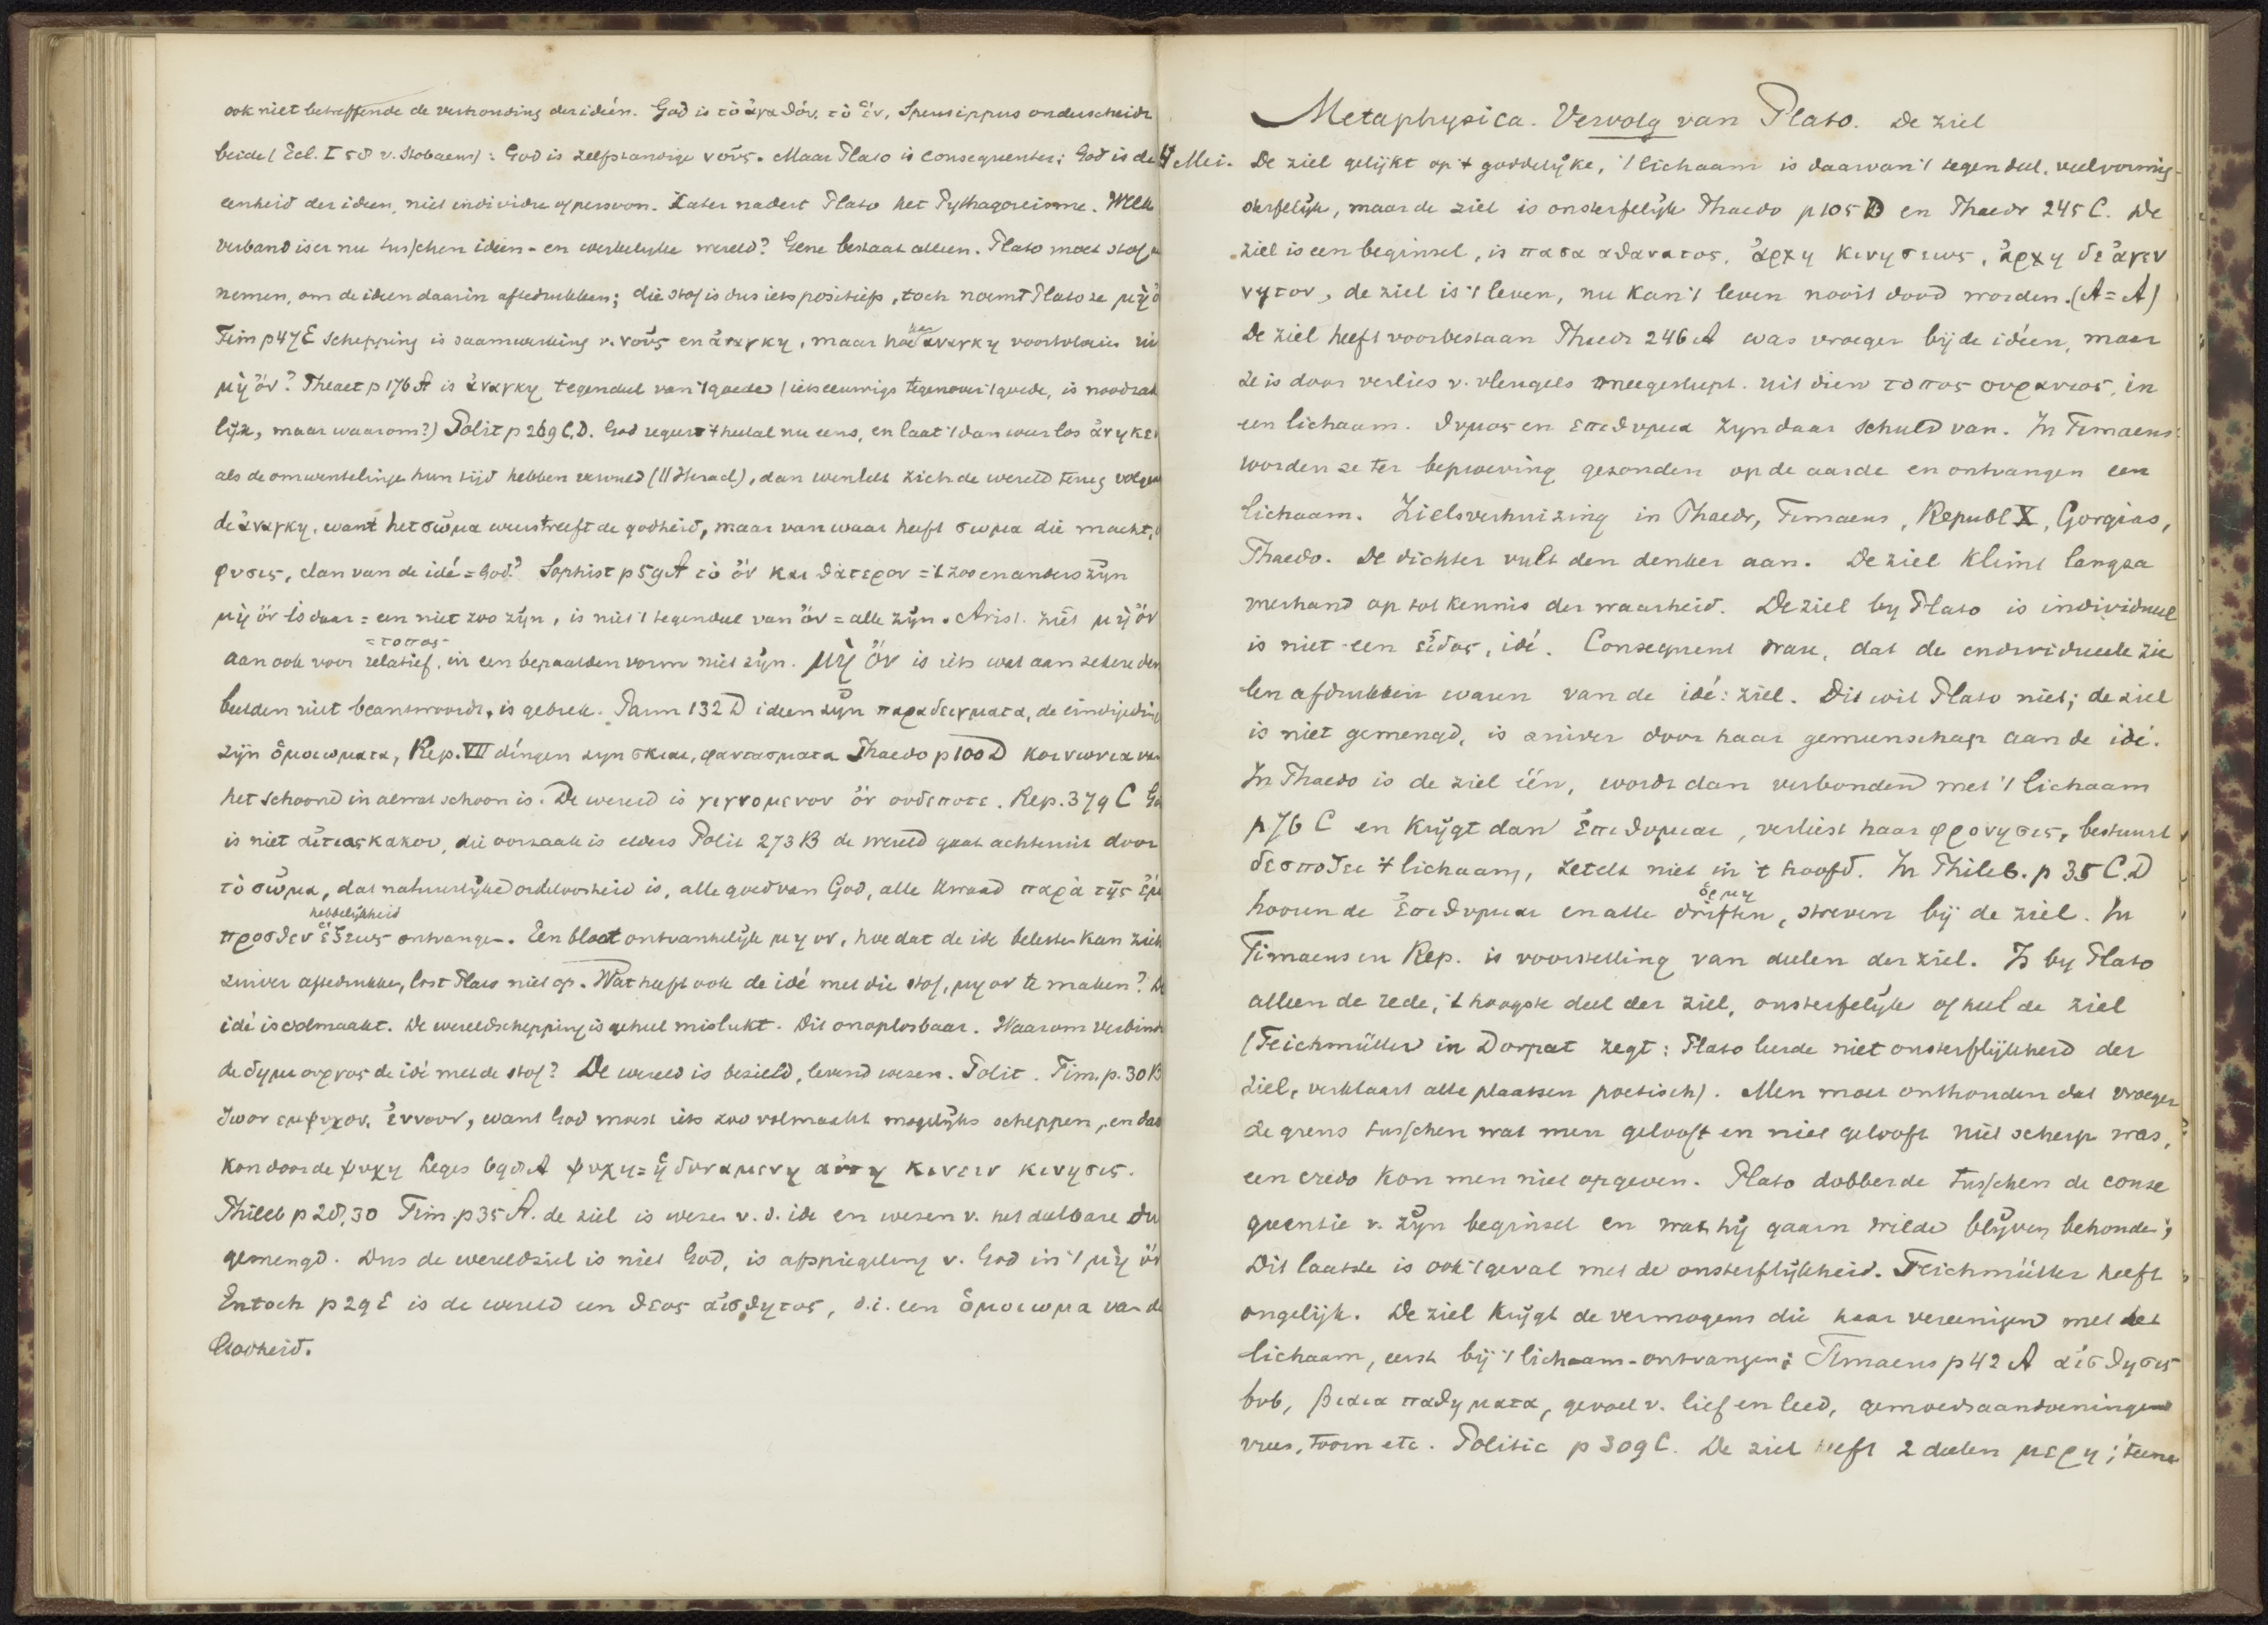 ook niet betreffende de verhouding der ideën. God is τὸ ἀγαθόν, τὸ ἕν, Speusippus onderscheidt
beide (Ecl. I 58 v. Stobaeus): God is zelfstandige νοῦς. Maar Plato is consequenter; God is de
eenheid der ideen, niet individu of persoon. Later nadert Plato het Pythagoreisme. Welk
verband is er nu tusschen ideën- en werkelyke wereld? Gene bestaat alleen. Plato moet stof
nemen, om de ideen daarin aftedrukken; die stof is dus iets positiefs, toch noemt Plato ze μὴ ὄ
Tim p 47 E Schepping is saamwerking v. νοῦς en ἀναγκη, maar hoe kan ἀναγκη voortvloeien uit
μὴ ὄν? Theaet p 176 A is ἀναγκη tegendeel van 't goede (iets eeuwigs tegenover 't goede, is noodzak
lijk, maar waarom?) Polit p 269 C, D. God regeert 't heelal nu eens, en laat 't dan weer los ἀνηκεν
als de omwentelingen hun tijd hebben vervuld (// Heracl), dan wentelt zich de wereld terug volgens
de ἀναγκη, want het σῶμα weerstreeft de godheid, maar van waar heeft σωμα die macht,
φυσις, dan van de idé = God? Sophist p 59 A τὸ ὄν και θἀτερον = 't zoo en anders zijn
μὴ ὄν is daar = een niet zoo zijn, is niet 't tegendeel van ὄν = alle zijn. Arist. ziet μὴ ὄν
= τοπος
aan ook voor relatief, in een bepaalden vorm niet zijn. μὴ ὄν is iets wat aan zekere den
beelden niet beantwoordt, is gebrek. Parm 132 D ideen zijn παραδειγματα, de eindige ding
zijn ὁμοιωματα, Rep. VII dingen zyn σκιαι, φαντασματα Phaedo p 100 D κοινωνια van
het schoone in al wat schoon is. De wereld is γιγνομενον ὄν ουδεποτε. Rep. 379 C Go
is niet ἀιτιας κακου, die oorzaak is elders Polit 273 B de wereld gaat achteruit door
τὸ σῶμα, dat natuurlijke ordeloosheid is, alle goed van God, alle kwaad παρὰ τῆς ἐμ
hebbelijkheid
προσθεν ἑξεως ontvangen. Een bloot ontvankelijk μη ον, hoe dat de ide beletten kan zich
zuiver aftedrukken, lost Plato niet op. Wat heeft ook de idé met die stof, μη ον te maken? De
idé is volmaakt. De wereldschepping is geheel mislukt. Dit onoplosbaar. Waarom verbindt
de δημιουργος de idé met de stof? De wereld is bezield, levend wezen. Polit. Tim. p. 30 B
ζωον εμψυχον, ἐννοον, want God moest iets zoo volmaakt mogelijks scheppen, en dat
kon door de ψυχη Leges 698 A ψυχη = ἡ δυναμενη ἀυτη κινειν κινησις.
Phileb p 28, 30 Tim. p 35 A. de ziel is wezen v. d. ide en wezen v. het deelbare du
gemengd. Dus de wereldziel is niet God, is afspiegeling v. God in 't μὴ ὄν
En toch p 29 E is de wereld een θεος ἀισθητος, d.i. een ὁμοιωμα van de
Godheid.
Metaphysica. Vervolg van Plato. De ziel
4 Mei. De ziel gelijkt op 't goddelijke, 't lichaam is daarvan 't tegendeel, veelvormig-
sterfelijk, maar de ziel is onsterfelijk Phaedo p 105 D en Phaedr 245 C. De
ziel is een beginsel, is πασα αθανατος, ἀρχη κινησεως, ἀρχη δε ἀγεν
νητον, de ziel is 't leven, nu kan 't leven nooit dood worden. (A = A)
De ziel heeft voorbestaan Phaedr 246 A was vroeger bij de ideën, maar
ze is door verlies v. vleugels meegesleept uit dien τοπος ουρανιος, in
een lichaam. θυμος en επιθυμια zyn daar schuld van. In Timaeus
worden ze ter beproeving gezonden op de aarde en ontvangen een
lichaam. Zielsverhuizing in Phaedr, Timaeus, Republ X, Gorgias,
Phaedo. De dichter vult den denker aan. De ziel klimt langza
merhand op tot kennis der waarheid. De ziel by Plato is individueel
is niet een εἰδος, idé. Consequent ware, dat de individueele zie
len afdrukken waren van de idé: ziel. Dit wil Plato niet; de ziel
is niet gemengd, is zuiver door haar gemeenschap aan de idé.
In Phaedo is de ziel één, wordt dan verbonden met 't lichaam
p 76 C en krijgt dan ἐπιθυμιαι, verliest haar φρονησις, bestuurt
δεσποζει 't lichaam, zetelt niet in 't hoofd. In Phileb. p 35 C. D
ὁρμη
hooren de ἐπιθυμιαι en alle driften, streven bij de ziel. In
Timaeus en Rep. is voorstelling van deelen der ziel. Is by Plato
alleen de rede, 't hoogste deel der ziel, onsterfelijk of heel de ziel
(Teichmüller in Dorpat zegt: Plato leerde niet onsterflijkheid der
ziel, verklaart alle plaatsen poetisch). Men moet onthouden dat vroeger
de grens tusschen wat men gelooft en niet gelooft niet scherp was,
een credo kon men niet opgeven. Plato dobberde tusschen de conse
quentie v. zijn beginsel en wat hij gaarn wilde blijven behouden;
Dit laatste is ook 't geval met de onsterflijkheid. Teichmüller heeft
ongelijk. De ziel krijgt de vermogens die haar vereenigen met het
lichaam, eerst bij 't lichaam-ontvangen; Timaeus p 42 A ἀισθησις
bvb, βιαια παθηματα, gevoel v. lief en leed, gemoedsaandoeningen
vrees, toorn etc. Politic p 309 C. De ziel heeft 2 deelen μερη; 't eene